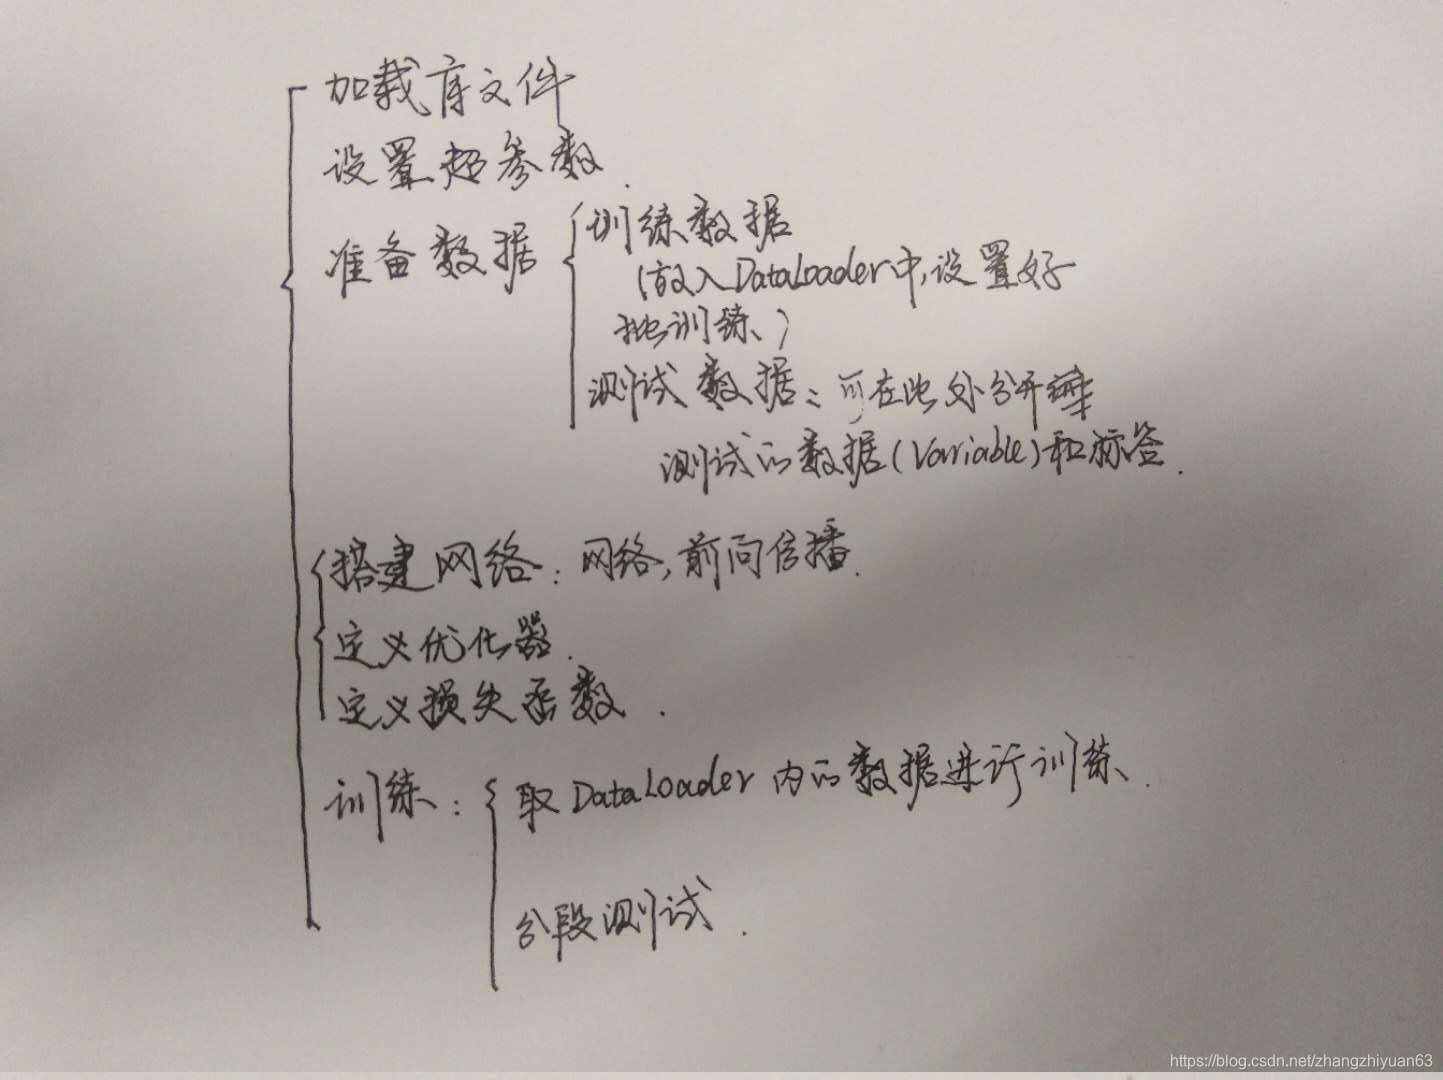 加载库文件
设置超参数.
准备数据
训练数据
(放入DataLoader中,设置好
批训练、)
测试数据:可在此处分开
测试的数据(Variable)和标签.
搭建网络:网络,前向传播.
定义优化器.
定义损失函数.
训练:
取DataLoader内的数据进行训练、.
分段测试.
https://blog.csdn.net/zhangzhiyuan63